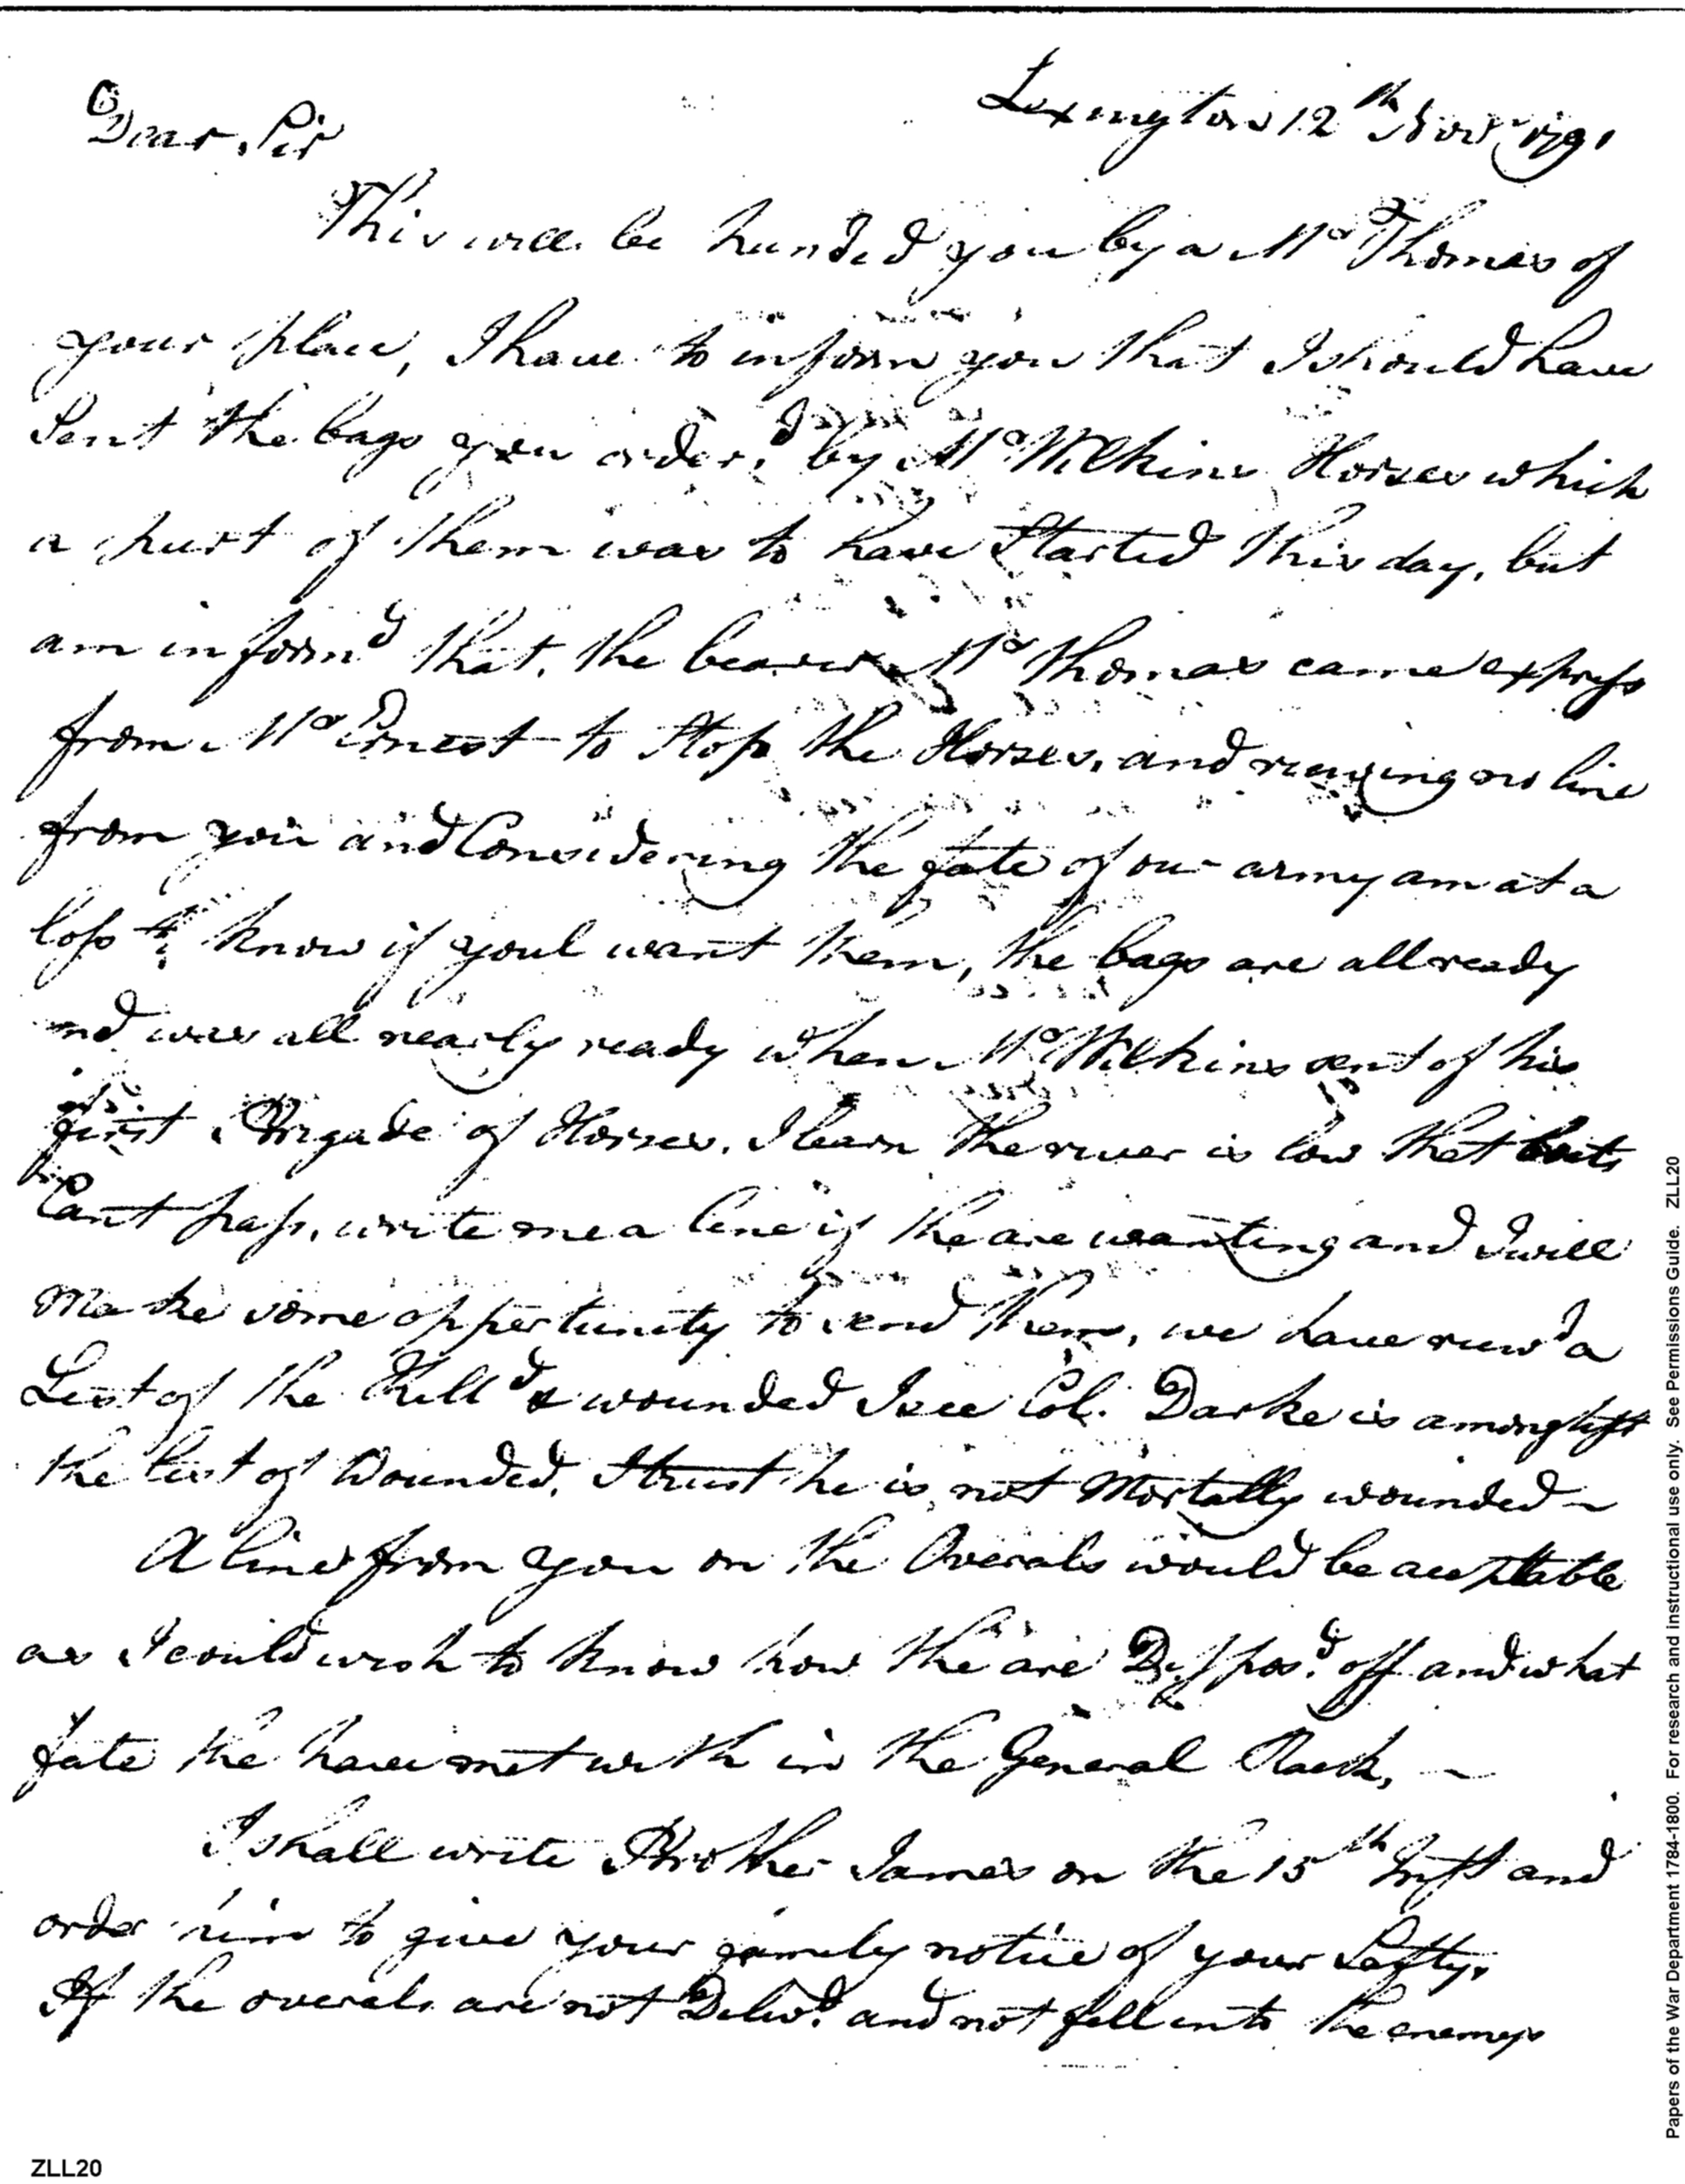 Lexington 12th Novr 1791
Dear Sir
This will be handed you by a Mr Thomas of
your place, I have to inform you that I should have
Sent the bags you order.d by Mr Wilkins Horses which
a part of them was to have Started this day, but
am inform'd that, the bearer Mr Thomas came express
from Mr Ernest to Stop the Horses, and receiving no line
from you and Considering the fate of our army am at a
loss to know if youl want them, the bags are all ready
and was all nearly ready when Mr Wilkins sent of his
first Brigade of Horses. I learn the river is low that boats
Cant pass, write me a line if the are wanting and I will
Make some oppertunity to send them, we have recvd a
List of the Killd & wounded I see Col. Darke is amongst
the list of Wounded, I trust he is not Mortally wounded ~
A line from you on the Overals would be acceptable
as I could wish to know how the are Disspos.d off and what
fate the have met with in the General Rack, ~
I shall write Brother James on the 15th Inst and
order him to give your family notice of your Safty.
If the overals are not Delivd. and not fell into the enemys
Papers of the War Department 1784-1800. For research and instructional use only. See Permissions Guide. ZLL20
ZLL20